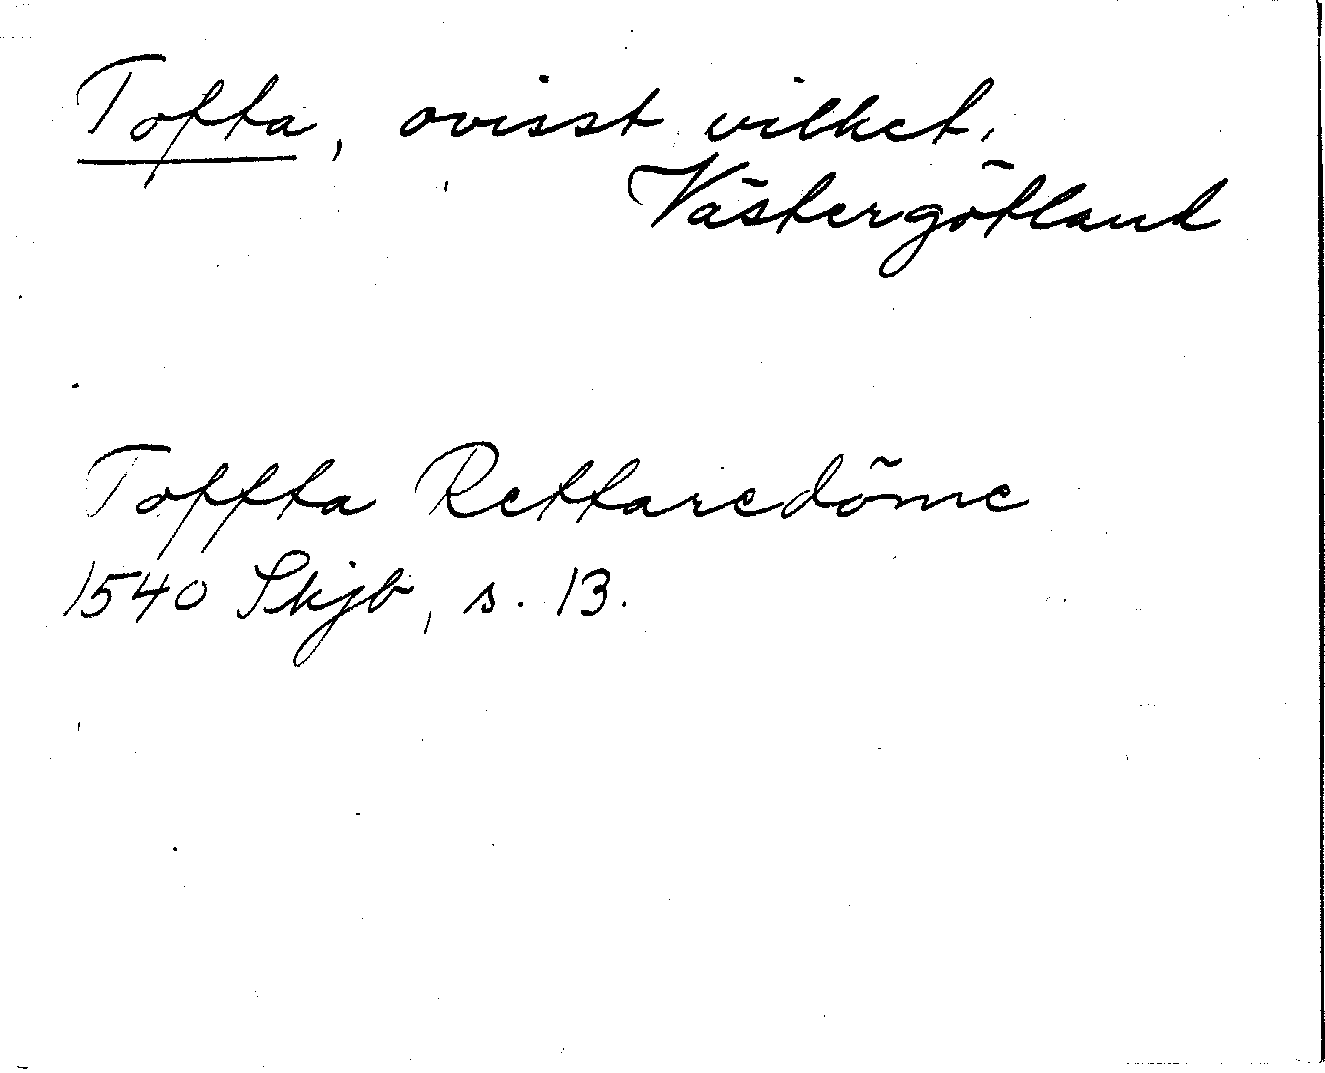 Tofta, ovisst vilket.
Västergötland
Toffta Rettaredöme
1540 Skjb, s. 13.